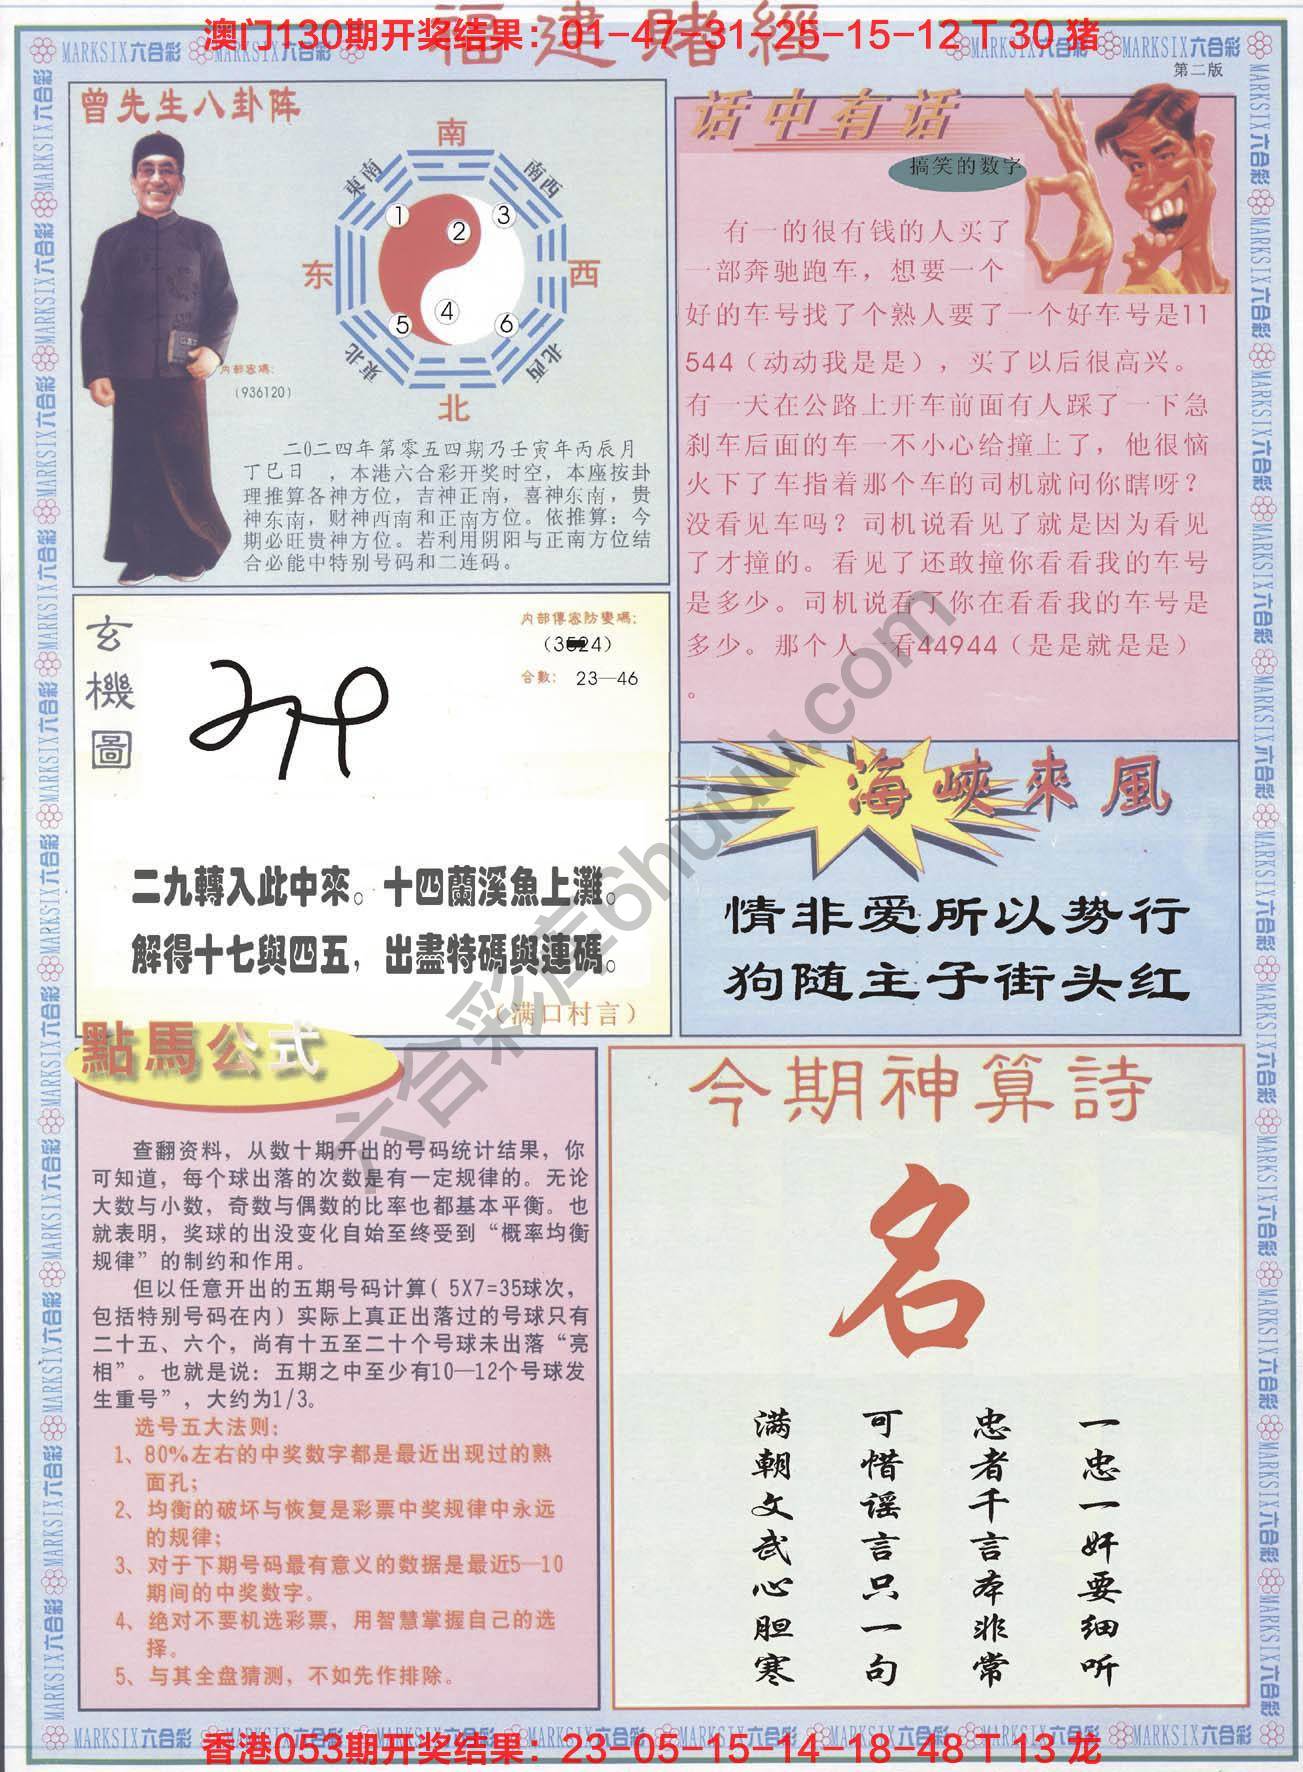 福建賭經
澳门130期开奖结果：01-47-31-25-15-12 T 30 猪
MARKSIX六合彩
第二版
曾先生八卦阵
南
東南
南西
1
2
3
东
西
4
5
6
東北
北西
北
内部密碼：
（936120）
二0二四年第零五四期乃壬寅年丙辰月
丁巳日 ，本港六合彩开奖时空，本座按卦
理推算各神方位，吉神正南，喜神东南，贵
神东南，财神西南和正南方位。依推算：今
期必旺贵神方位。若利用阴阳与正南方位结
合必能中特别号码和二连码。
话中有话
搞笑的数字
有一的很有钱的人买了
一部奔驰跑车，想要一个
好的车号找了个熟人要了一个好车号是11
544（动动我是是），买了以后很高兴。
有一天在公路上开车前面有人踩了一下急
刹车后面的车一不小心给撞上了，他很恼
火下了车指着那个车的司机就问你瞎呀？
没看见车吗？司机说看见了就是因为看见
了才撞的。看见了还敢撞你看看我的车号
是多少。司机说看了你在看看我的车号是
多少。那个人一看44944（是是就是是）
。
玄機圖
内部傳密防變碼：
合數： 23—46
二九轉入此中來。十四蘭溪魚上灘。
解得十七與四五，出盡特碼與連碼。
（满口村言）
海峽來風
情非爱所以势行
狗随主子街头红
點馬公式
查翻资料，从数十期开出的号码统计结果，你
可知道，每个球出落的次数是有一定规律的。无论
大数与小数，奇数与偶数的比率也都基本平衡。也
就表明，奖球的出没变化自始至终受到“概率均衡
规律”的制约和作用。
但以任意开出的五期号码计算( 5X7=35球次，
包括特别号码在内）实际上真正出落过的号球只有
二十五、六个，尚有十五至二十个号球未出落“亮
相”。也就是说：五期之中至少有10—12个号球发
生重号”，大约为1/3。
选号五大法则：
1、80%左右的中奖数字都是最近出现过的熟
面孔；
2、均衡的破坏与恢复是彩票中奖规律中永远
的规律；
3、对于下期号码最有意义的数据是最近5—10
期间的中奖数字。
4、绝对不要机选彩票，用智慧掌握自己的选
择。
5、与其全盘猜测，不如先作排除。
今期神算詩
名
一忠一奸要细听
忠者千言本非常
可惜谣言只一句
满朝文武心胆寒
六合彩库6huuu.com
MARKSIX六合彩
香港053期开奖结果：23-05-15-14-18-48 T 13 龙